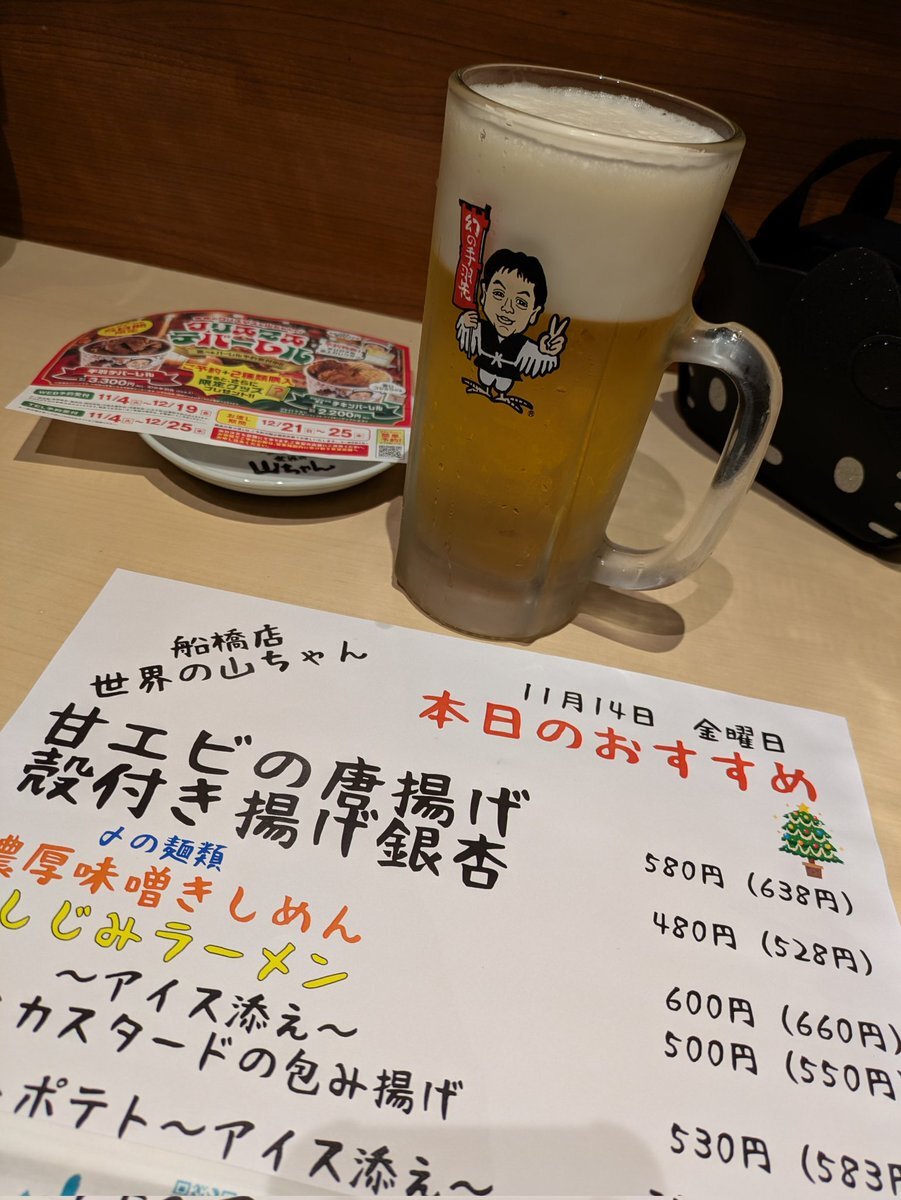 幻の手羽先
クリスマス
テバーレル
手羽先バーレル
3,300円
ご予約+2種類購入で
さらに
限定グッズ
プレゼント!!
2,200円
11/4 〜 12/19
11/4 〜 12/25
お渡し
期間
12/21 〜 25
山ちゃん
船橋店
世界の山ちゃん
11月14日 金曜日
本日のおすすめ
甘エビの唐揚げ 580円 (638円)
殻付き揚げ銀杏 480円 (528円)
〆の麺類
濃厚味噌きしめん 600円 (660円)
しじみラーメン 500円 (550円
〜アイス添え〜
カスタードの包み揚げ 530円 (583円
ポテト〜アイス添え〜